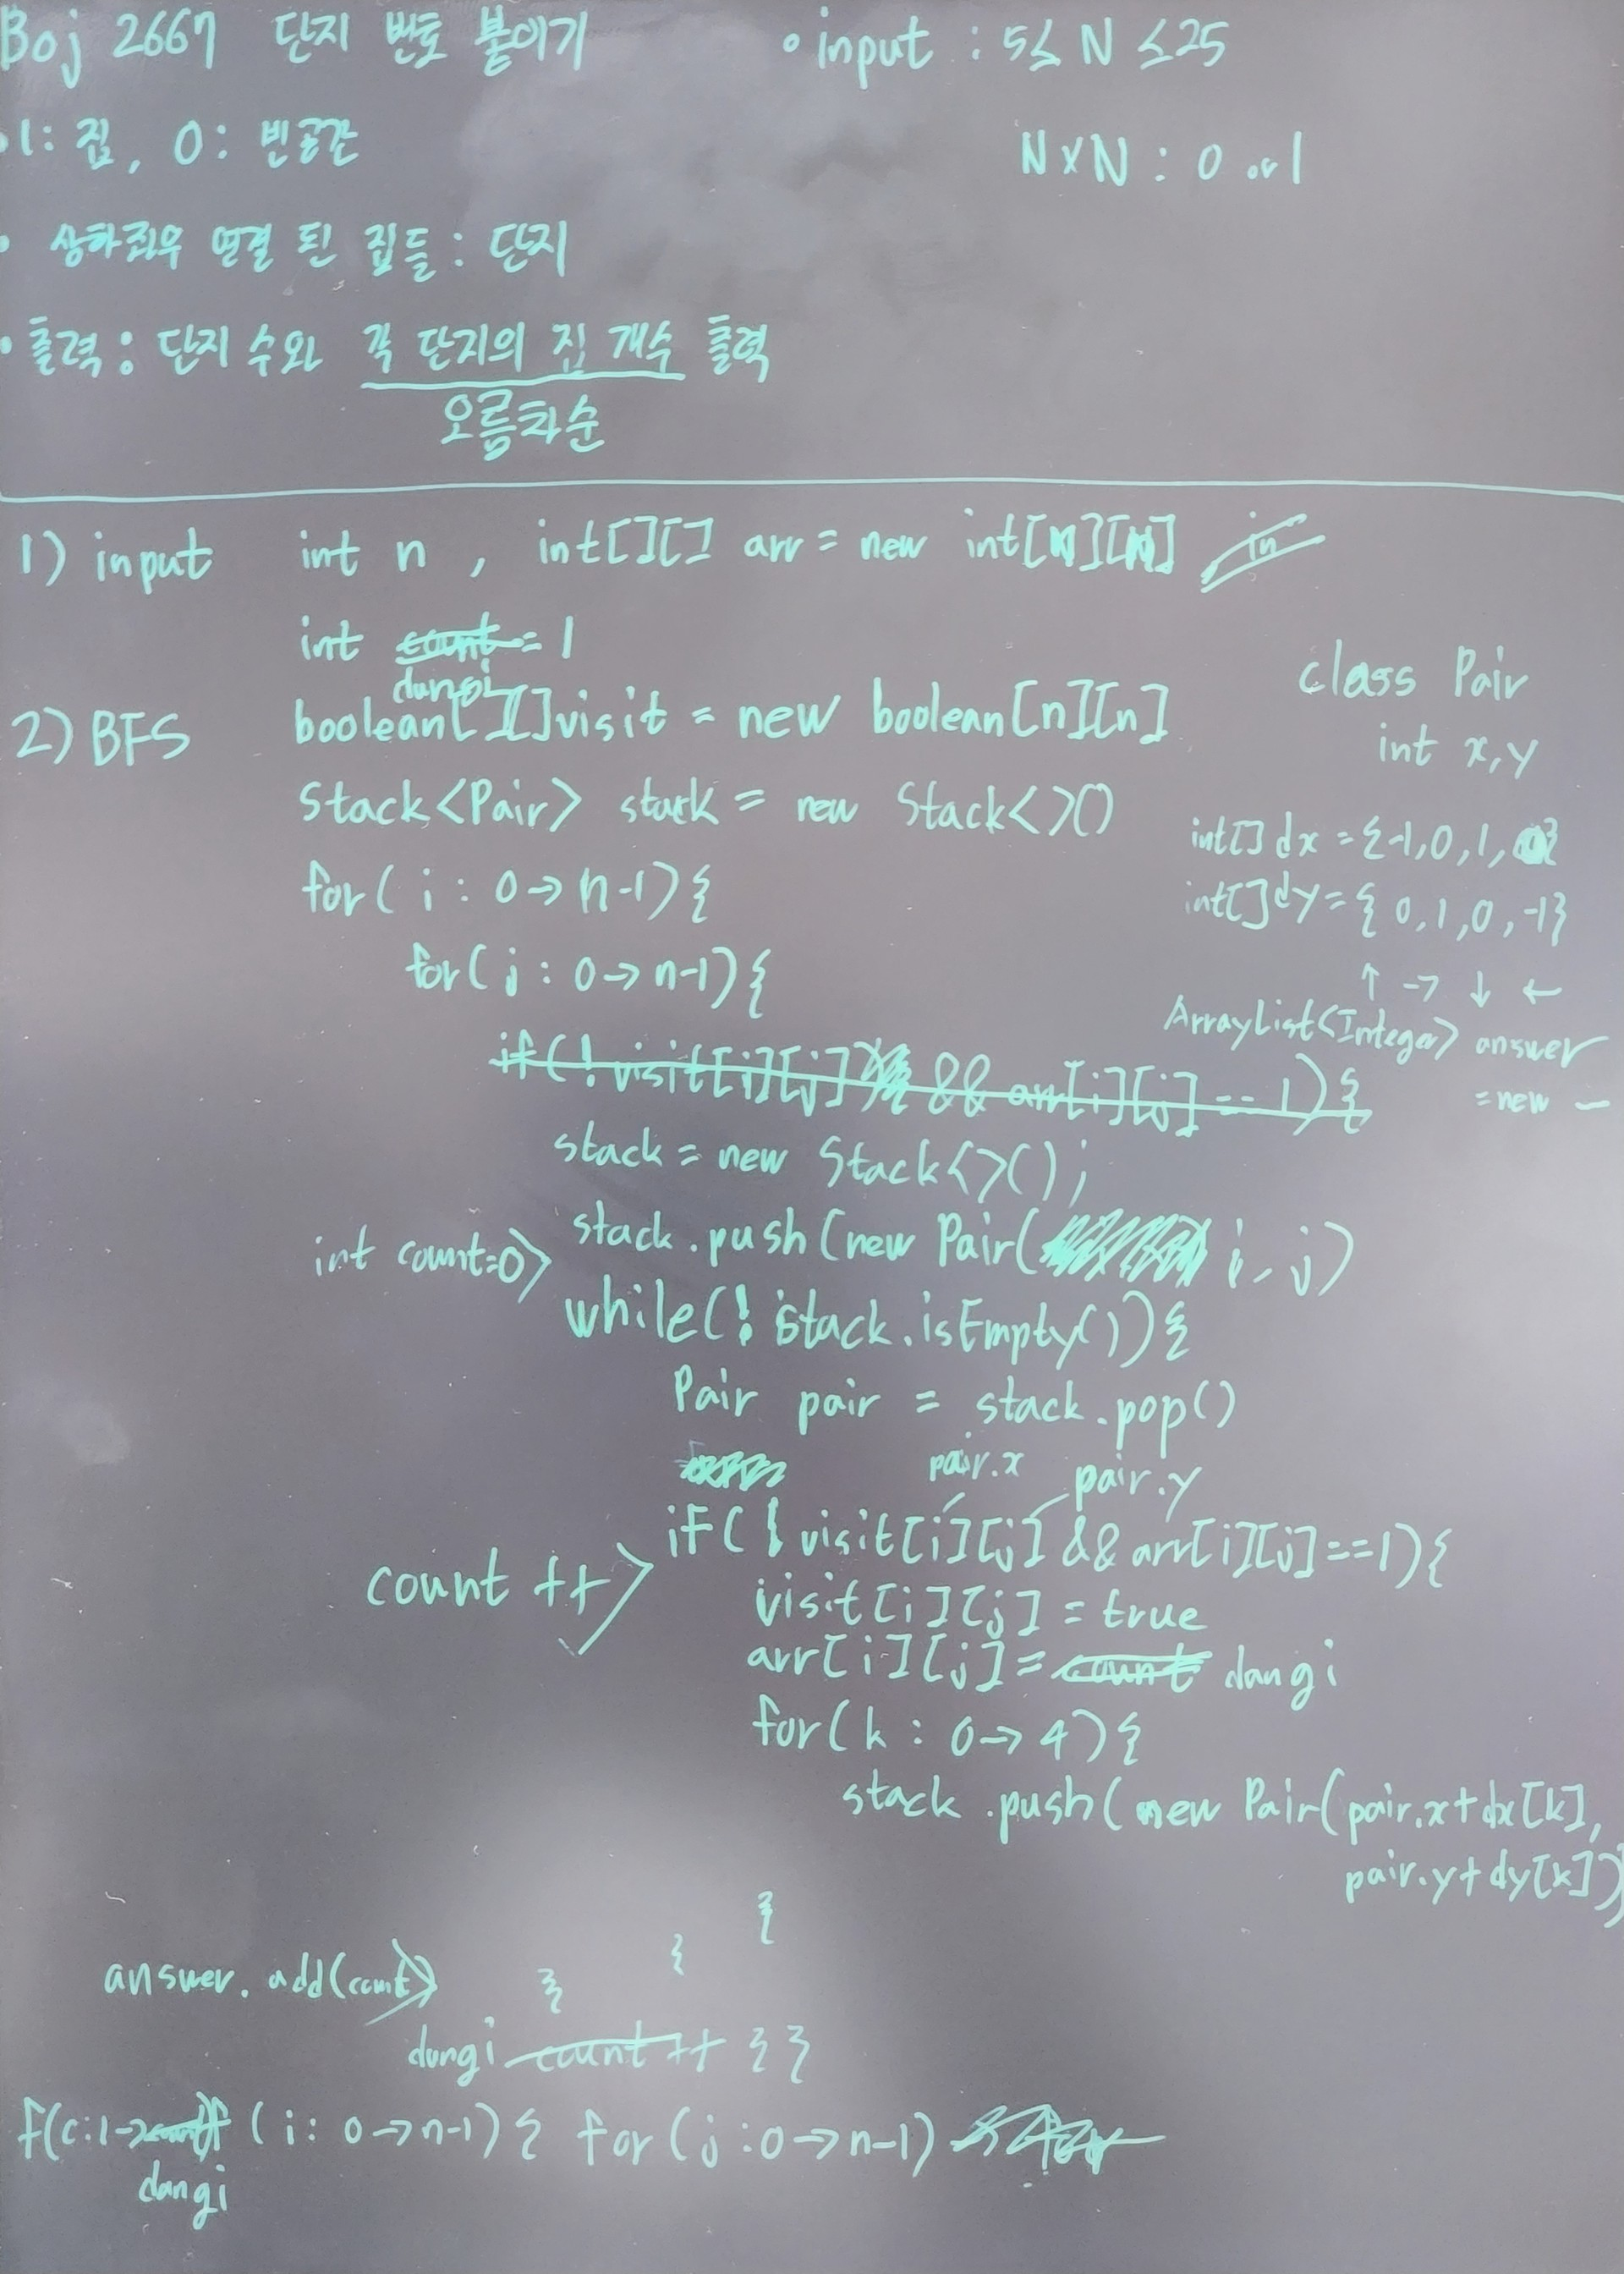 Boj 2667 단지 번호 붙이기
• input : 5≤ N ≤25
N×N : 0 or 1
• 1: 집, 0: 빈공간
• 상하좌우 연결 된 집들 : 단지
• 출력 : 단지 수와 각 단지의 집 개수 출력
오름차순
1) input int n , int[][] arr = new int[N][N] in
int count = 1
dangi
2) BFS boolean[][]visit = new boolean[n][n]
Stack<Pair> stack = new Stack<>()
for( i : 0→ n-1){
for( j : 0→ n-1){
class Pair
int x,y
int[] dx = {-1,0,1,0}
int[] dy = { 0,1,0,-1}
↑ → ↓ ←
ArrayList<Integer> answer
= new —
if(!visit[i][j] && arr[i][j] == 1){
stack = new Stack<>();
int count=0> stack.push(new Pair( i, j)
while(! stack.isEmpty()){
Pair pair = stack.pop()
pair.x pair.y
if( ! visit[i][j] && arr[i][j]==1){
count ++>
visit[i][j] = true
arr[i][j] = count dangi
for( k : 0→ 4){
stack .push( new Pair(pair.x+dx[k],
pair.y+dy[k])
}
}
answer. add(count) }
dangi count ++ } }
f(c:1→ (i: 0→n-1){ for(j:0→n-1)
dangi